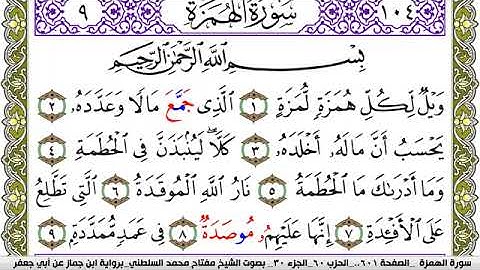 ١٠٤ سُورَةُ الْهُمَزَةِ ٩
بِسْمِ اللَّهِ الرَّحْمَٰنِ الرَّحِيمِ
وَيْلٌ لِكُلِّ هُمَزَةٍ لُمَزَةٍ ١ الَّذِى جَمَّعَ مَالًا وَعَدَّدَهُۥ ٢
يَحْسَبُ أَنَّ مَالَهُۥ أَخْلَدَهُۥ ٣ كَلَّاۖ لَيُنۢبَذَنَّ فِى الْحُطَمَةِ ٤
وَمَا أَدْرَىٰكَ مَا الْحُطَمَةُ ٥ نَارُ اللَّهِ الْمُوقَدَةُ ٦ الَّتِى تَطَّلِعُ
عَلَى الْأَفْـِٔدَةِ ٧ إِنَّهَا عَلَيْهِمُۥ مُوصَدَةٌ ٨ فِى عَمَدٍ مُمَدَّدَةٍ ٩
سورة الهمزة _الصفحة ٦٠١.._الحزب ٦٠_الجزء ٣٠_ بصوت الشيخ مفتاح محمد السلطني_برواية ابن جماز عن أبي جعفر